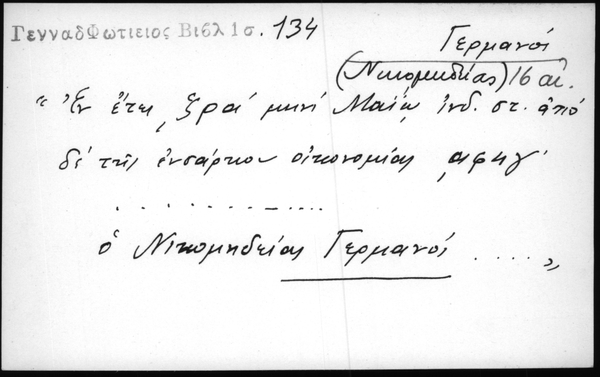 ΓενναδΦωτιειος Βιβλ 1 σ. 134
Γερμανός
(Νικομηδείας) 16 αἰ.
"Ἐν ἔτει ͵ζραʹ μηνί Μαίῳ ἰνδ. στ. ἀπό
δέ τῆς ἐνσάρκου οἰκονομίας ͵αφϟγʹ
. . . . . . . – . . . .
ὁ Νικομηδείας Γερμανός . . . . . "